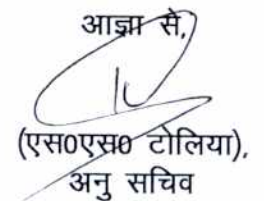 आज्ञा से,
(एस0एस0 टोलिया),
अनु सचिव